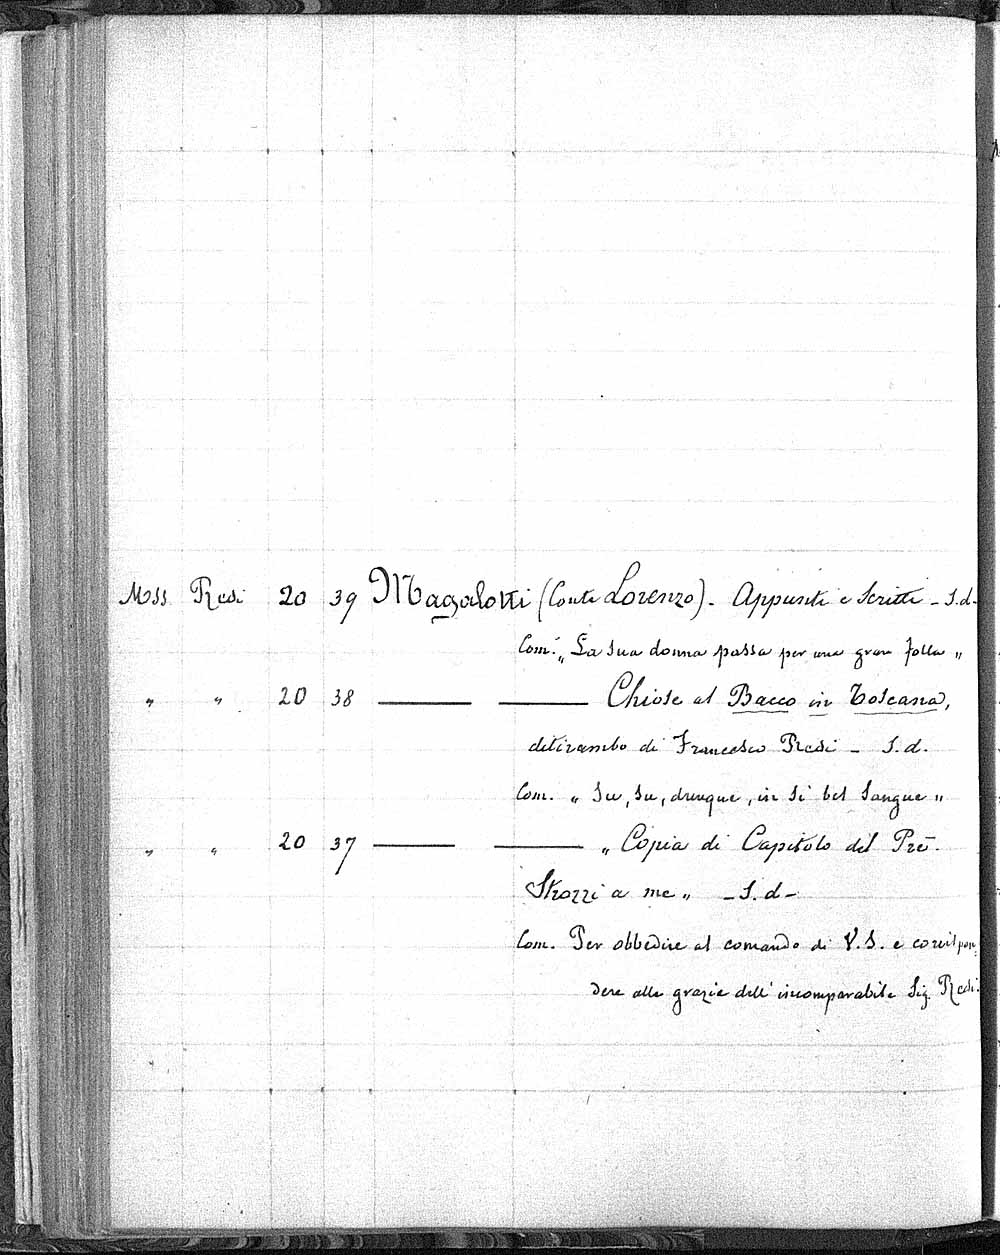 Mss. Redi 20 39 Magalotti (Conte Lorenzo). Appunti e Scritti - S.d.
Com. „ La sua donna passa per una gran folla „
„ „ 20 38 — — Chiose al Bacco in Toscana,
ditirambo di Francesco Redi - S.d.
Com. „ Su, su, dunque, in sì bel sangue „
„ „ 20 37 — — „ Copia di Capitolo del Pre.
Strozzi a me „ - S.d -
Com. Per obbedire al comando di V.S. e corrispon
dere alle grazie dell' incomparabile Sig. Redi.